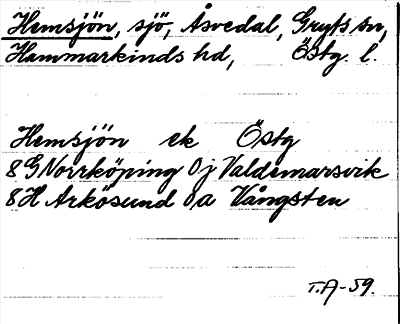 Hemsjön, sjö, Åsvedal, Gryts sn,
Hammarkinds hd, Östg. l.
Hemsjön ek Östg
8G Norrköping 0j Valdemarsvik
8H Arkösund 0a Vångsten
T.A-59.